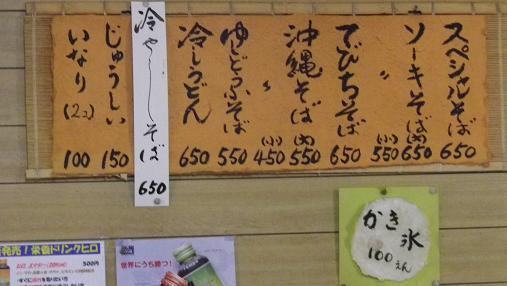 スペシャルそば 650
ソーキそば(大) 650
〃 (小) 550
てびちそば 650
沖縄そば(大) 550
〃 (小) 450
ゆしどうふそば 550
冷しうどん 650
冷やしそば 650
じゅうしい 150
いなり(2コ) 100
かき氷
100えん
発売!栄養ドリンクヒロ
500円
世界にうち勝つ!